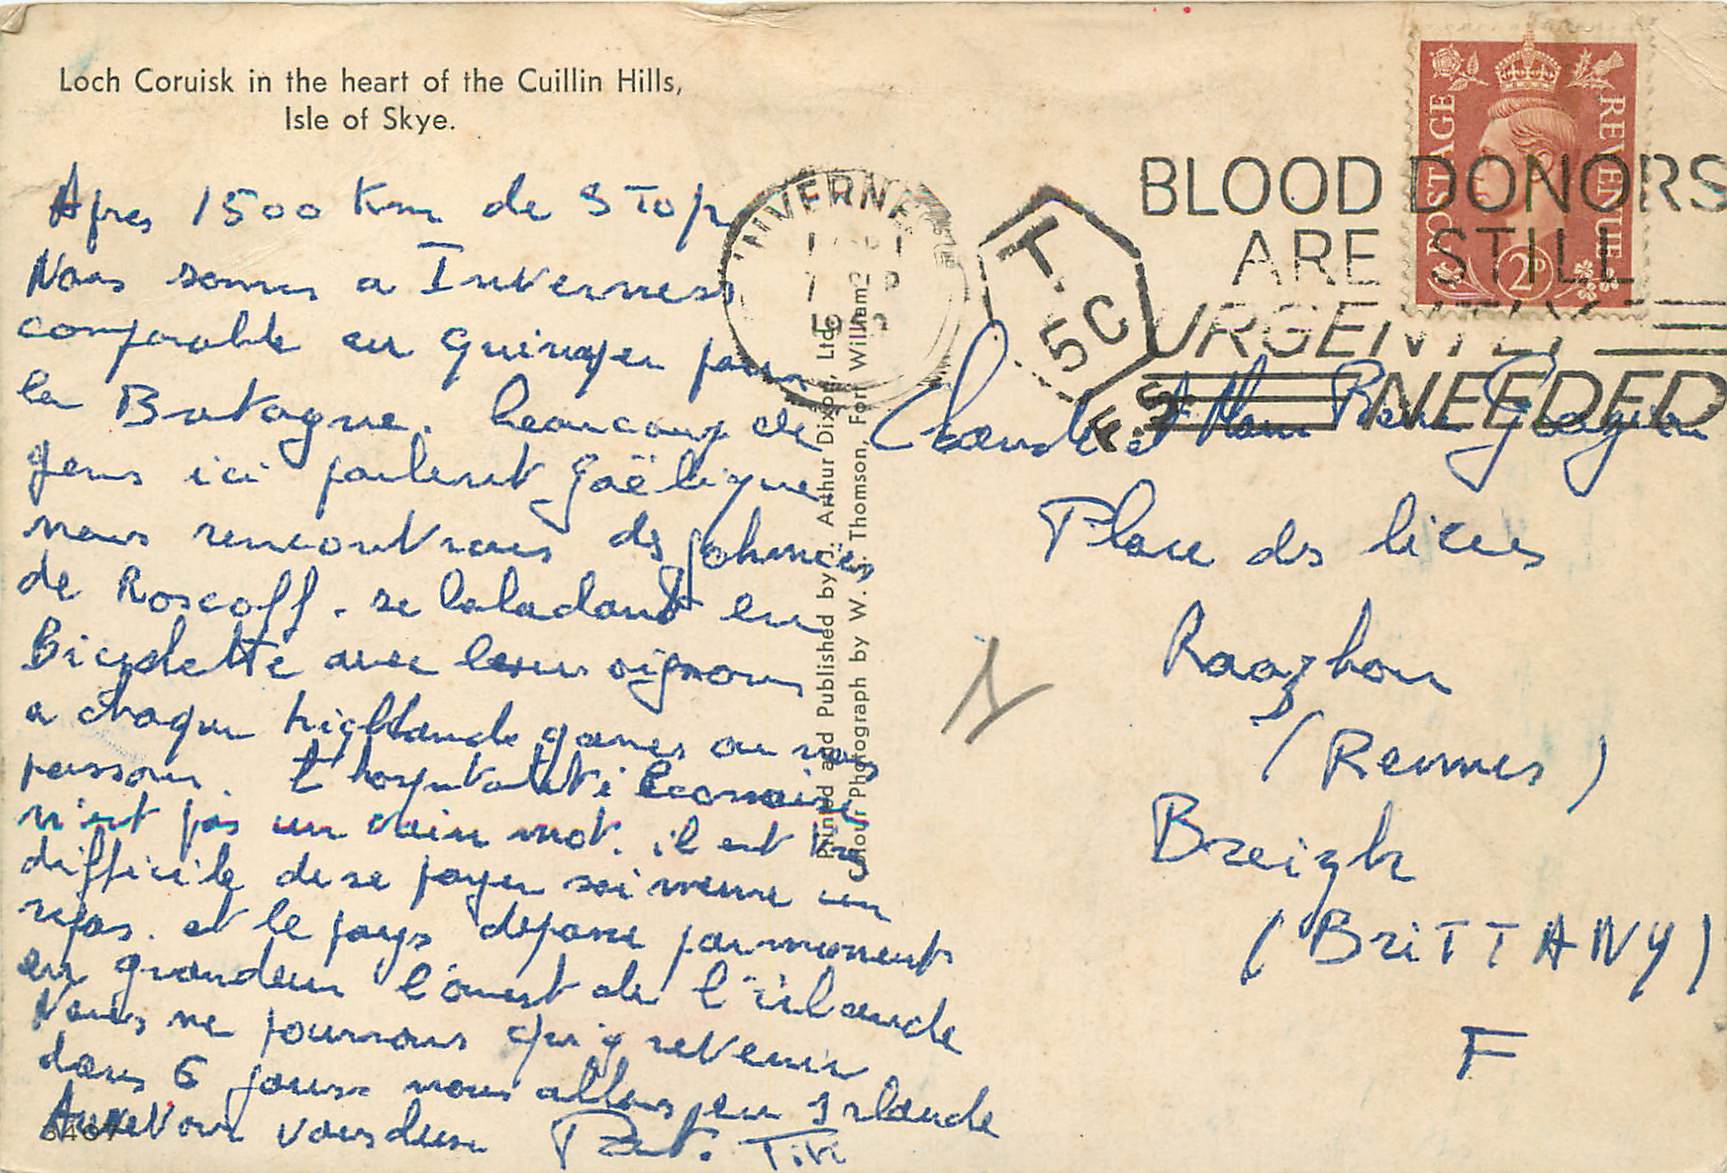 Loch Coruisk in the heart of the Cuillin Hills,
Isle of Skye.
Apres 1500 Km de STop
Nous sommes a Inverness
comparable au Guingan pour
la Bretagne. beaucoup de
gens ici parlent Gaëlique
nous rencontrons des johnnies
de Roscoff. se baladant en
Bicyclette avec leurs oignons
a chaque highlands games ou nous
passons. L'hospitalité Ecossaise
n'est pas un vain mot. il est tres
difficile de se payer soi meme un
repas. et le pays depasse par moments
en grandeur l'ouest de l'irlande
Nous ne pourrons qu'y revenir
dans 6 jours nous allons en Irlande
Aurevoir vous deux Pat. Titi
6467
Printed and Published by Arthur Dixon, Ltd.
Colour Photograph by W. S. Thomson, Fort William
INVERNESS
T
5C
F.S.
BLOOD DONORS
ARE STILL
URGENTLY
NEEDED
POSTAGE REVENUE
2D
et
Place des lices
Roazhon
(Rennes)
Breizh
(BriTTANY)
F